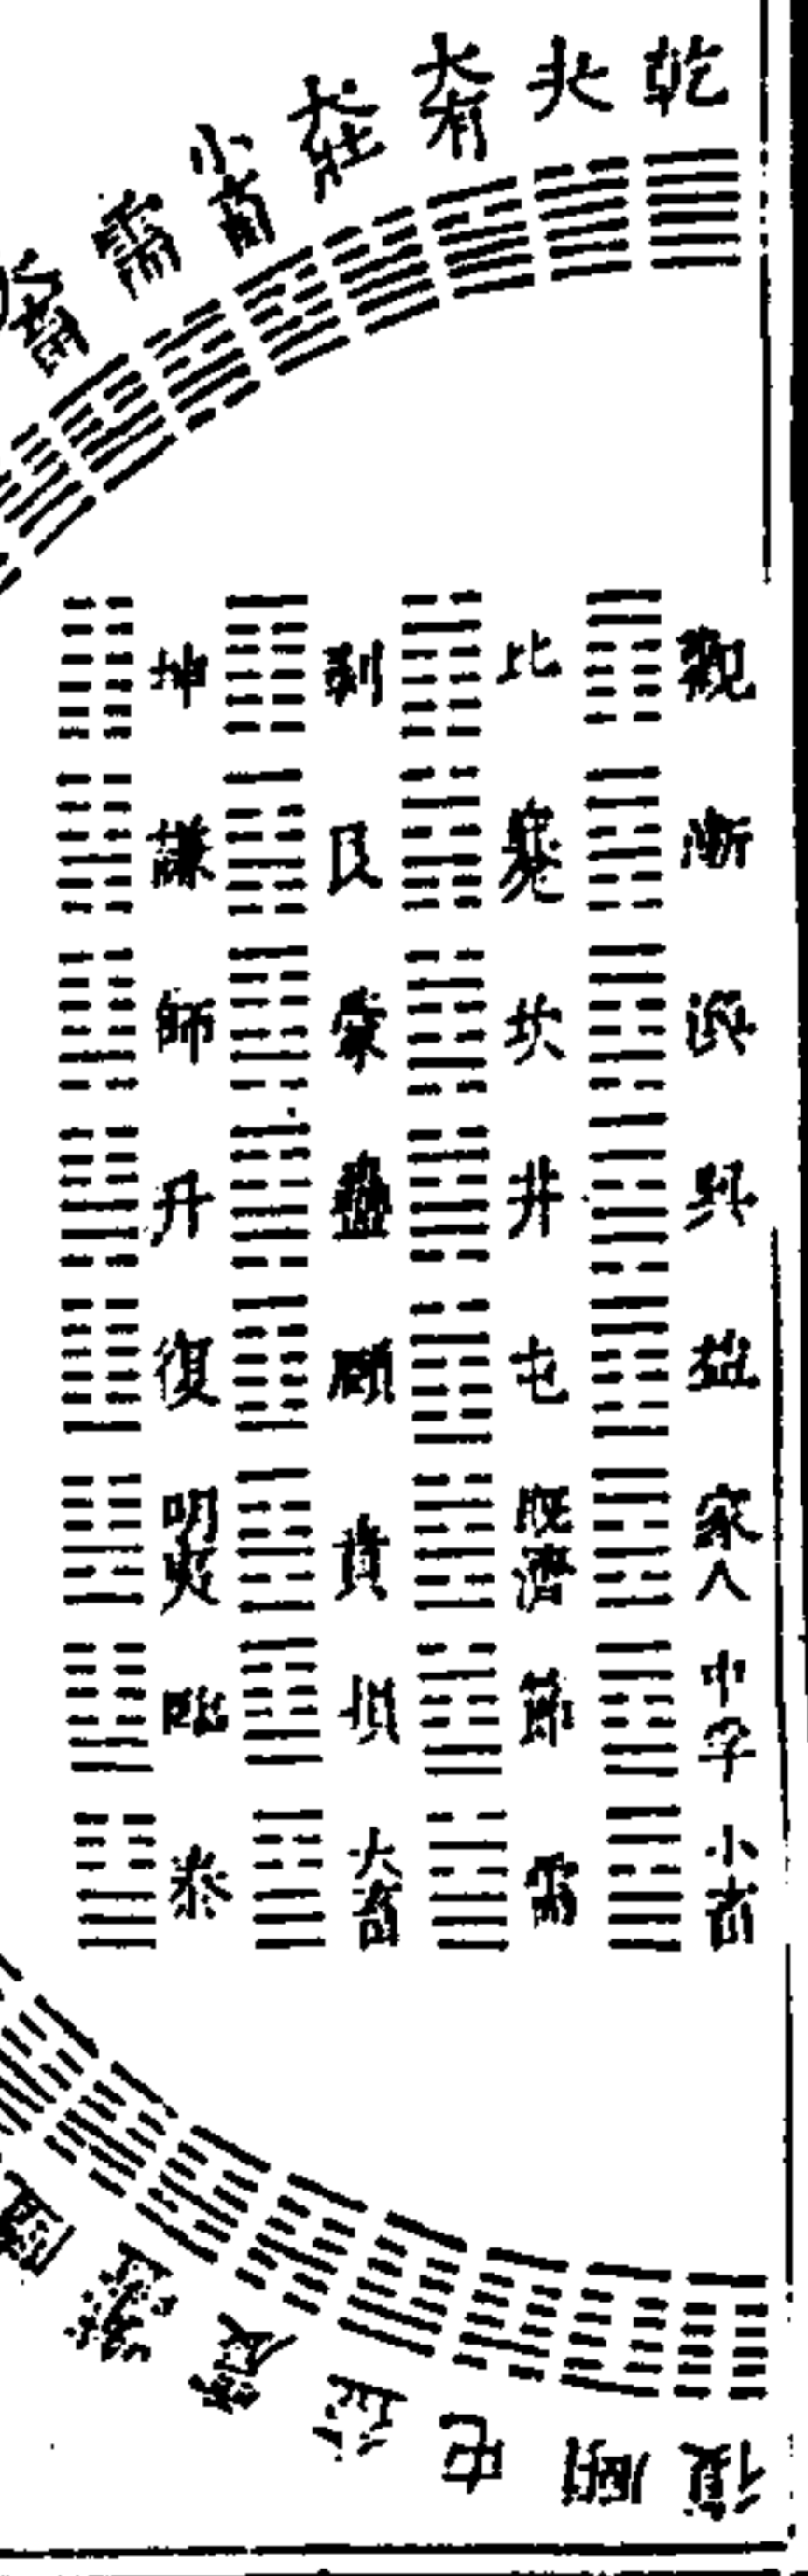 乾夬大有大壯小畜需大畜
觀漸渙巽益家人中孚小畜
比蹇坎井屯既濟節需
剝艮蒙蠱頤賁損大畜
坤謙師升復明夷臨泰
復頤屯益震噬嗑